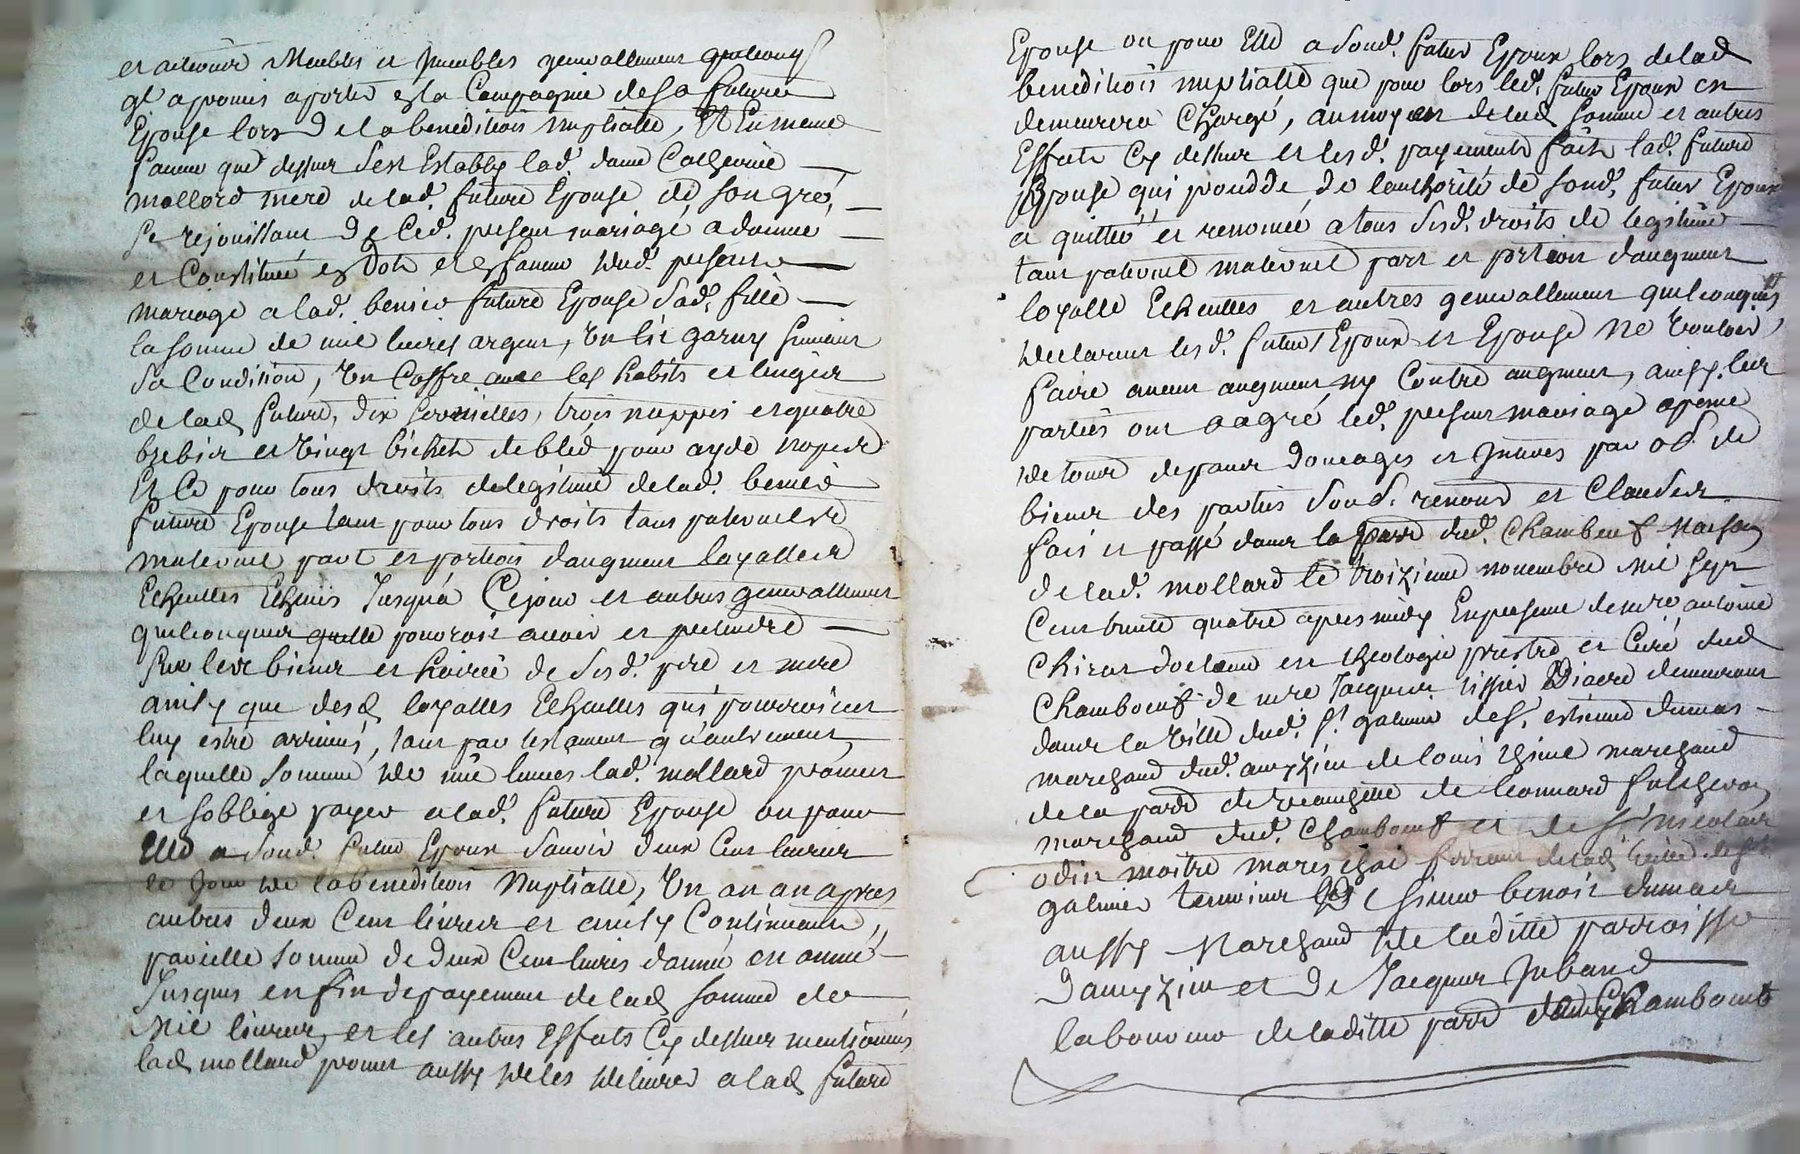 et actions Meubles et Jmeubles generallement quelconq
ql a promis aporter en la Compagnie de sa future
Epouse lors de la benediction Nuptialle, Et En meme
faveur que dessus s'est Establys lad. dame Catherine
mollard mere de lad. future Epouse de son gré,
se rejouissant de Ced. presant mariage a donné
et Constitué en Dote et en faveur dud. present
mariage a lad. benite future Epouse sad. fille
la somme de mil livres argent, Un lit garny suivant
sa Condition, Un Coffre avec les habits et linges
de lad. future, dix serviettes, trois nappes et quatre
brebis et Vingt bichets de bled pour ayde nopces
Et Ce pour tous droits de legitime de lad. benite
future Epouse tant pour tous droits tant paternel et
maternel part et portion daugment loyalle et
Echeuttes Echuës Jusqu'a Cejour et autres generallement
quelconques quelle pouroit avoir et pretendre
sur les biens et hoirie de sesd. pere et mere
ainsy que desd. loyalles Echeuttes qui pourroient
luy estre arrivés, tant par testament qu'autrement
laquelle somme de mil livres lad. mollard promet
et soblige payer a lad. future Epouse ou pour
Elle a sond. futur Epoux savoir deux Cent livres
le Jour de la benediction Nuptialle, Un an an apres
autres deux Cent livres et ainsy Continuant
pareille somme de deux Cent livres d'année en année
Jusques en fin de payement de lad. somme de
Mil livres, et les autres Effets Cy dessus mentionnés
lad. mollard promet aussy de les delivrer a lad. future
Epouse ou pour Elle a sond. futur Epoux lors de lad.
benediction nuptialle que pour lors led. futur Epoux en
demeurera Chargé, au moyen de lad. somme et autres
Effets Cy dessus et lesd. payements faits lad. future
Epouse qui procede de l'authorité de sond. futur Epoux
a quitté et renoncé a tous sesd. droits de legitime
tant paternel maternel part et portion daugment
loyalle Echeuttes et autres generallement quelconques
declarant lesd. futurs Epoux et Epouse Ne Vouloir
faire aucun augment ny Contre augment, ainsy. les
parties ont agréé led. present mariage a peine
de tous depans domages et Jnterets par obl. de
biens des parties soub. renonc. et Clauses
fait et passé dans la parr. dud. Chambeuf Maison
de lad. mollard le troizieme novembre Mil sept
Cent trente quatre apres midy En presence de mre antoine
Chirat docteur en theologie prestre et Curé dud.
Chambœuf de mre Jacques tissier Diacre demeurant
dans la Ville dud. St. galmier de s. estienne dumas
marchand dud. auezieu de louis thime marchand
de la parr. de veauchette de leonnard fulcheron
marchand dud. Chambœuf et de sr Nicolas
odin maitre mareschal ferrant de lad. Ville de St
galmier temoins et sieur benoit dumas
aussy Marchand de laditte parroisse
Dauezieu et de Jacques Juband
laboureur de laditte parr. de Chambœuf